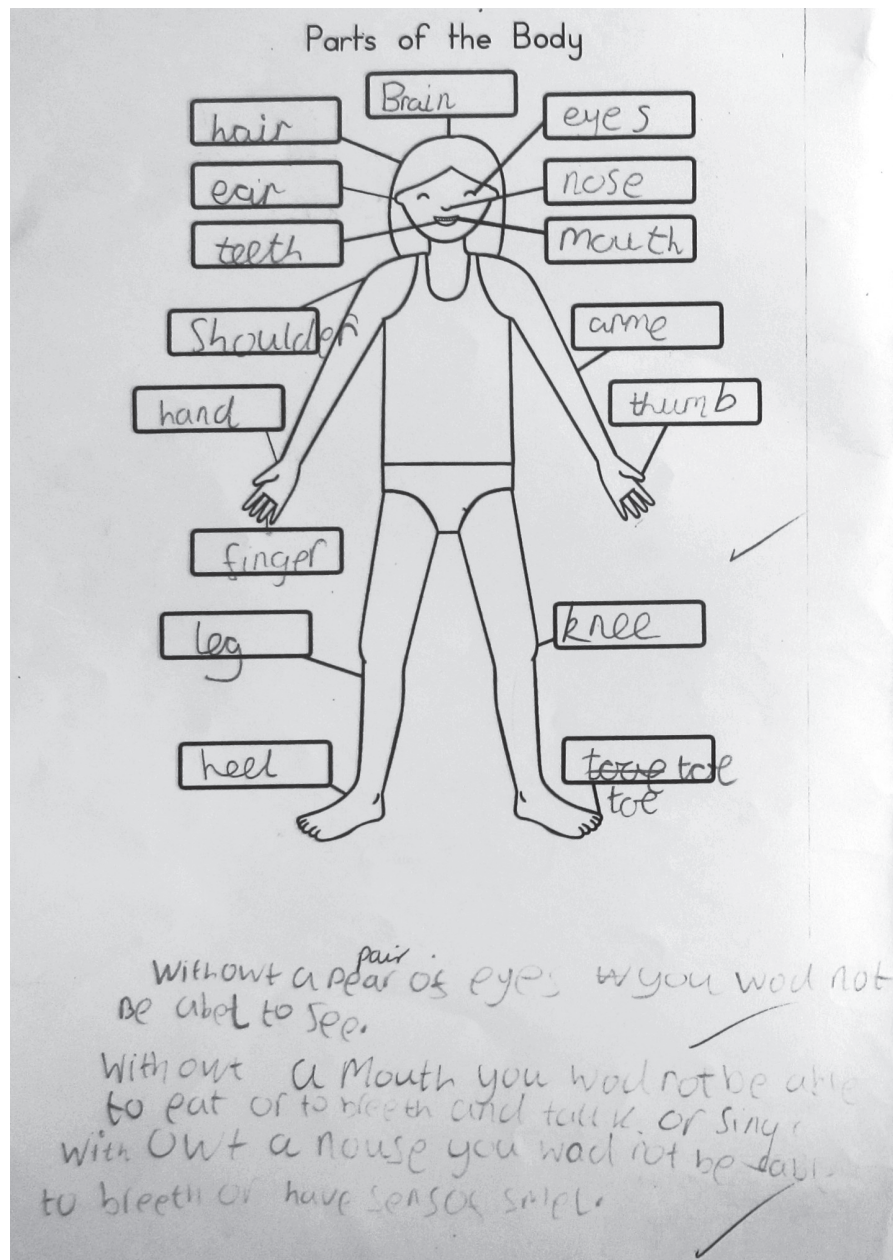 Parts of the Body
Brain
hair
eyes
ear
nose
teeth
mouth
Shoulder
arme
hand
thumb
finger
leg
knee
heel
toe
toe
pair
Without a pear of eyes you wod not
Be abel to see.
Without a Mouth you wod not be able
to eat or to breeth and tallk. or Sing
with Owt a nouse you wod not be
to breeth or have sensof smel.